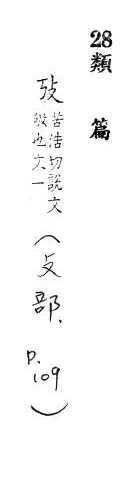 28
類篇
攷
苦浩切說文
敂也文一
(攴部.
p.
109)